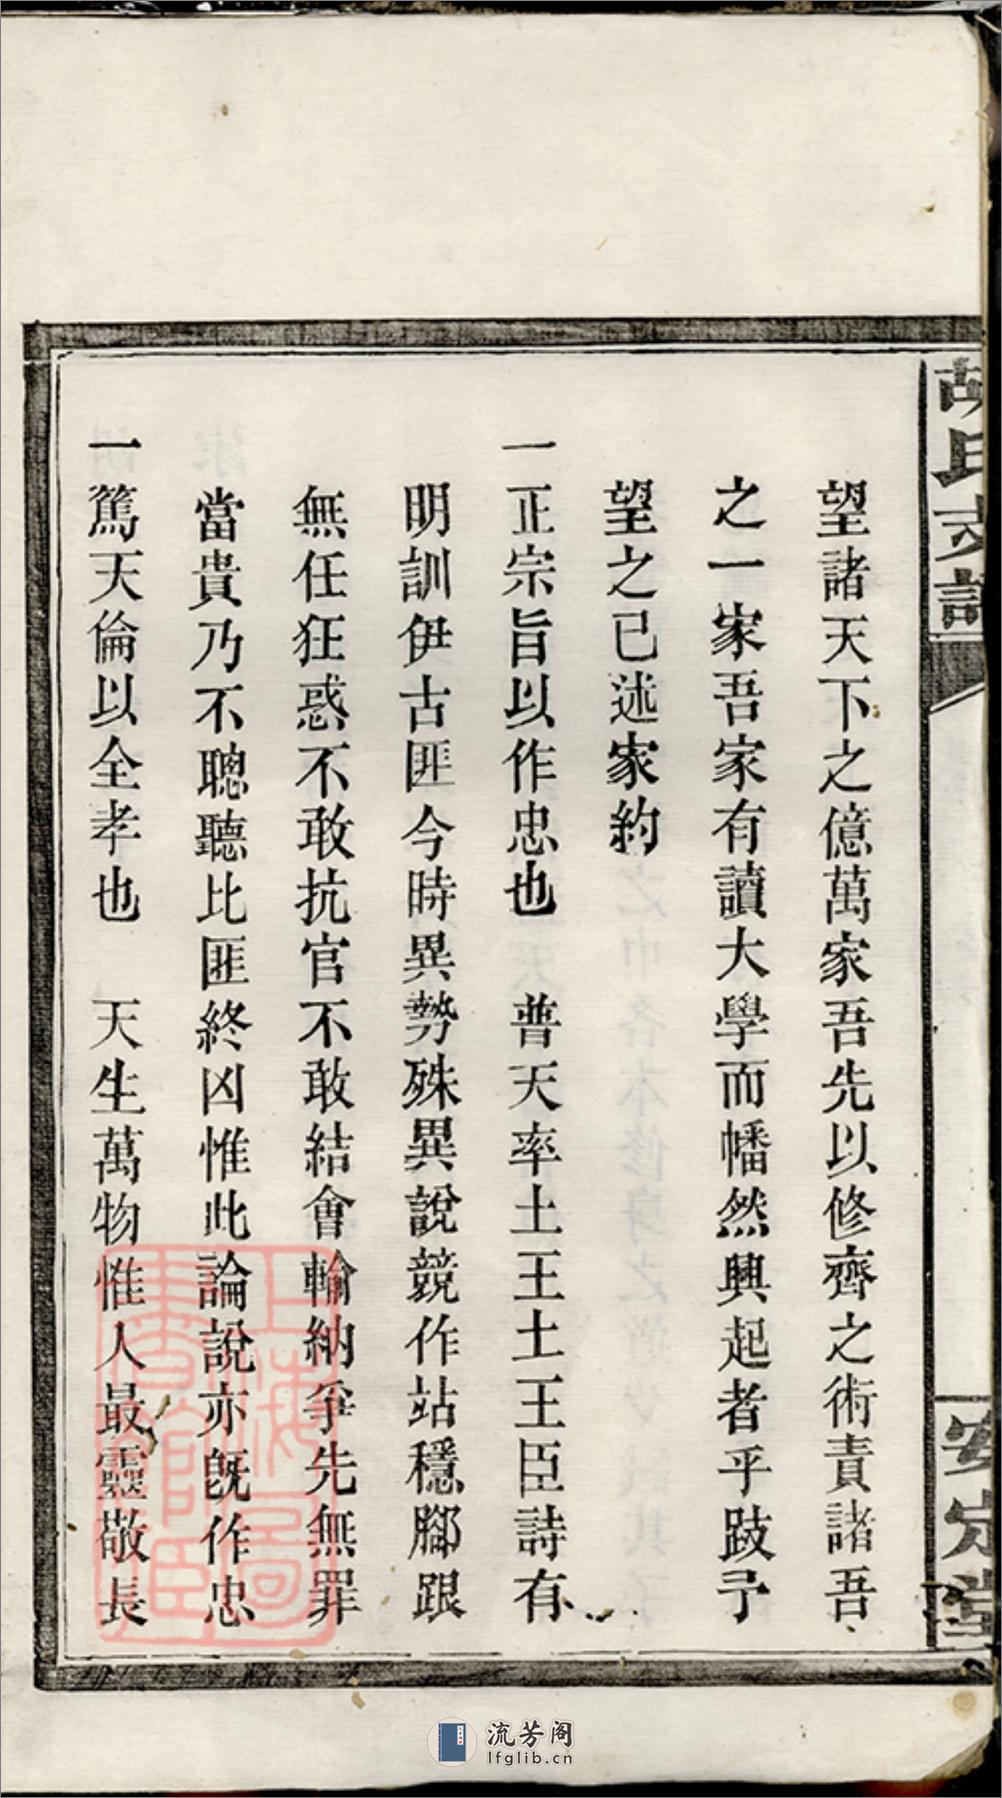 胡氏支譜
安定堂
望諸天下之億萬家吾先以修齊之術責諸吾
之一家吾家有讀大學而幡然興起者乎跂予
望之已述家約
一正宗旨以作忠也　普天率土王土王臣詩有
明訓伊古匪今時異勢殊異說競作站穩腳跟
無任狂惑不敢抗官不敢結會輸納爭先無罪
當貴乃不聰聽比匪終凶惟此論說亦旣作忠
一篤天倫以全孝也　天生萬物惟人最靈敬長
上海圖書館藏
流芳阁
lfglib.cn